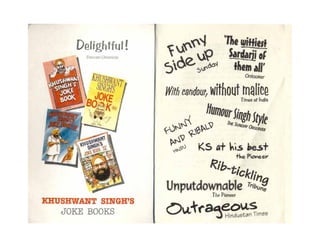 Delightful!
Deccan Chronicle
KHUSHWANT
SINGH'S
JOKE
BOOK
KHUSHWANT
SINGH'S
JOKE
BOOK
KHUSHWANT SINGH'S
JOKE BOOKS
Funny
Side up
Sunday
'The wittiest
Sardarji of
them all'
Onlooker
With candour, without malice
Times of India
Humour Singh Style
The Deccan Chronicle
FUNNY
AND RIBALD
HINDU
KS at his best
the Pioneer
Rib-tickling
Tribune
Unputdownable
The Pioneer
Outrageous
Hindustan Times